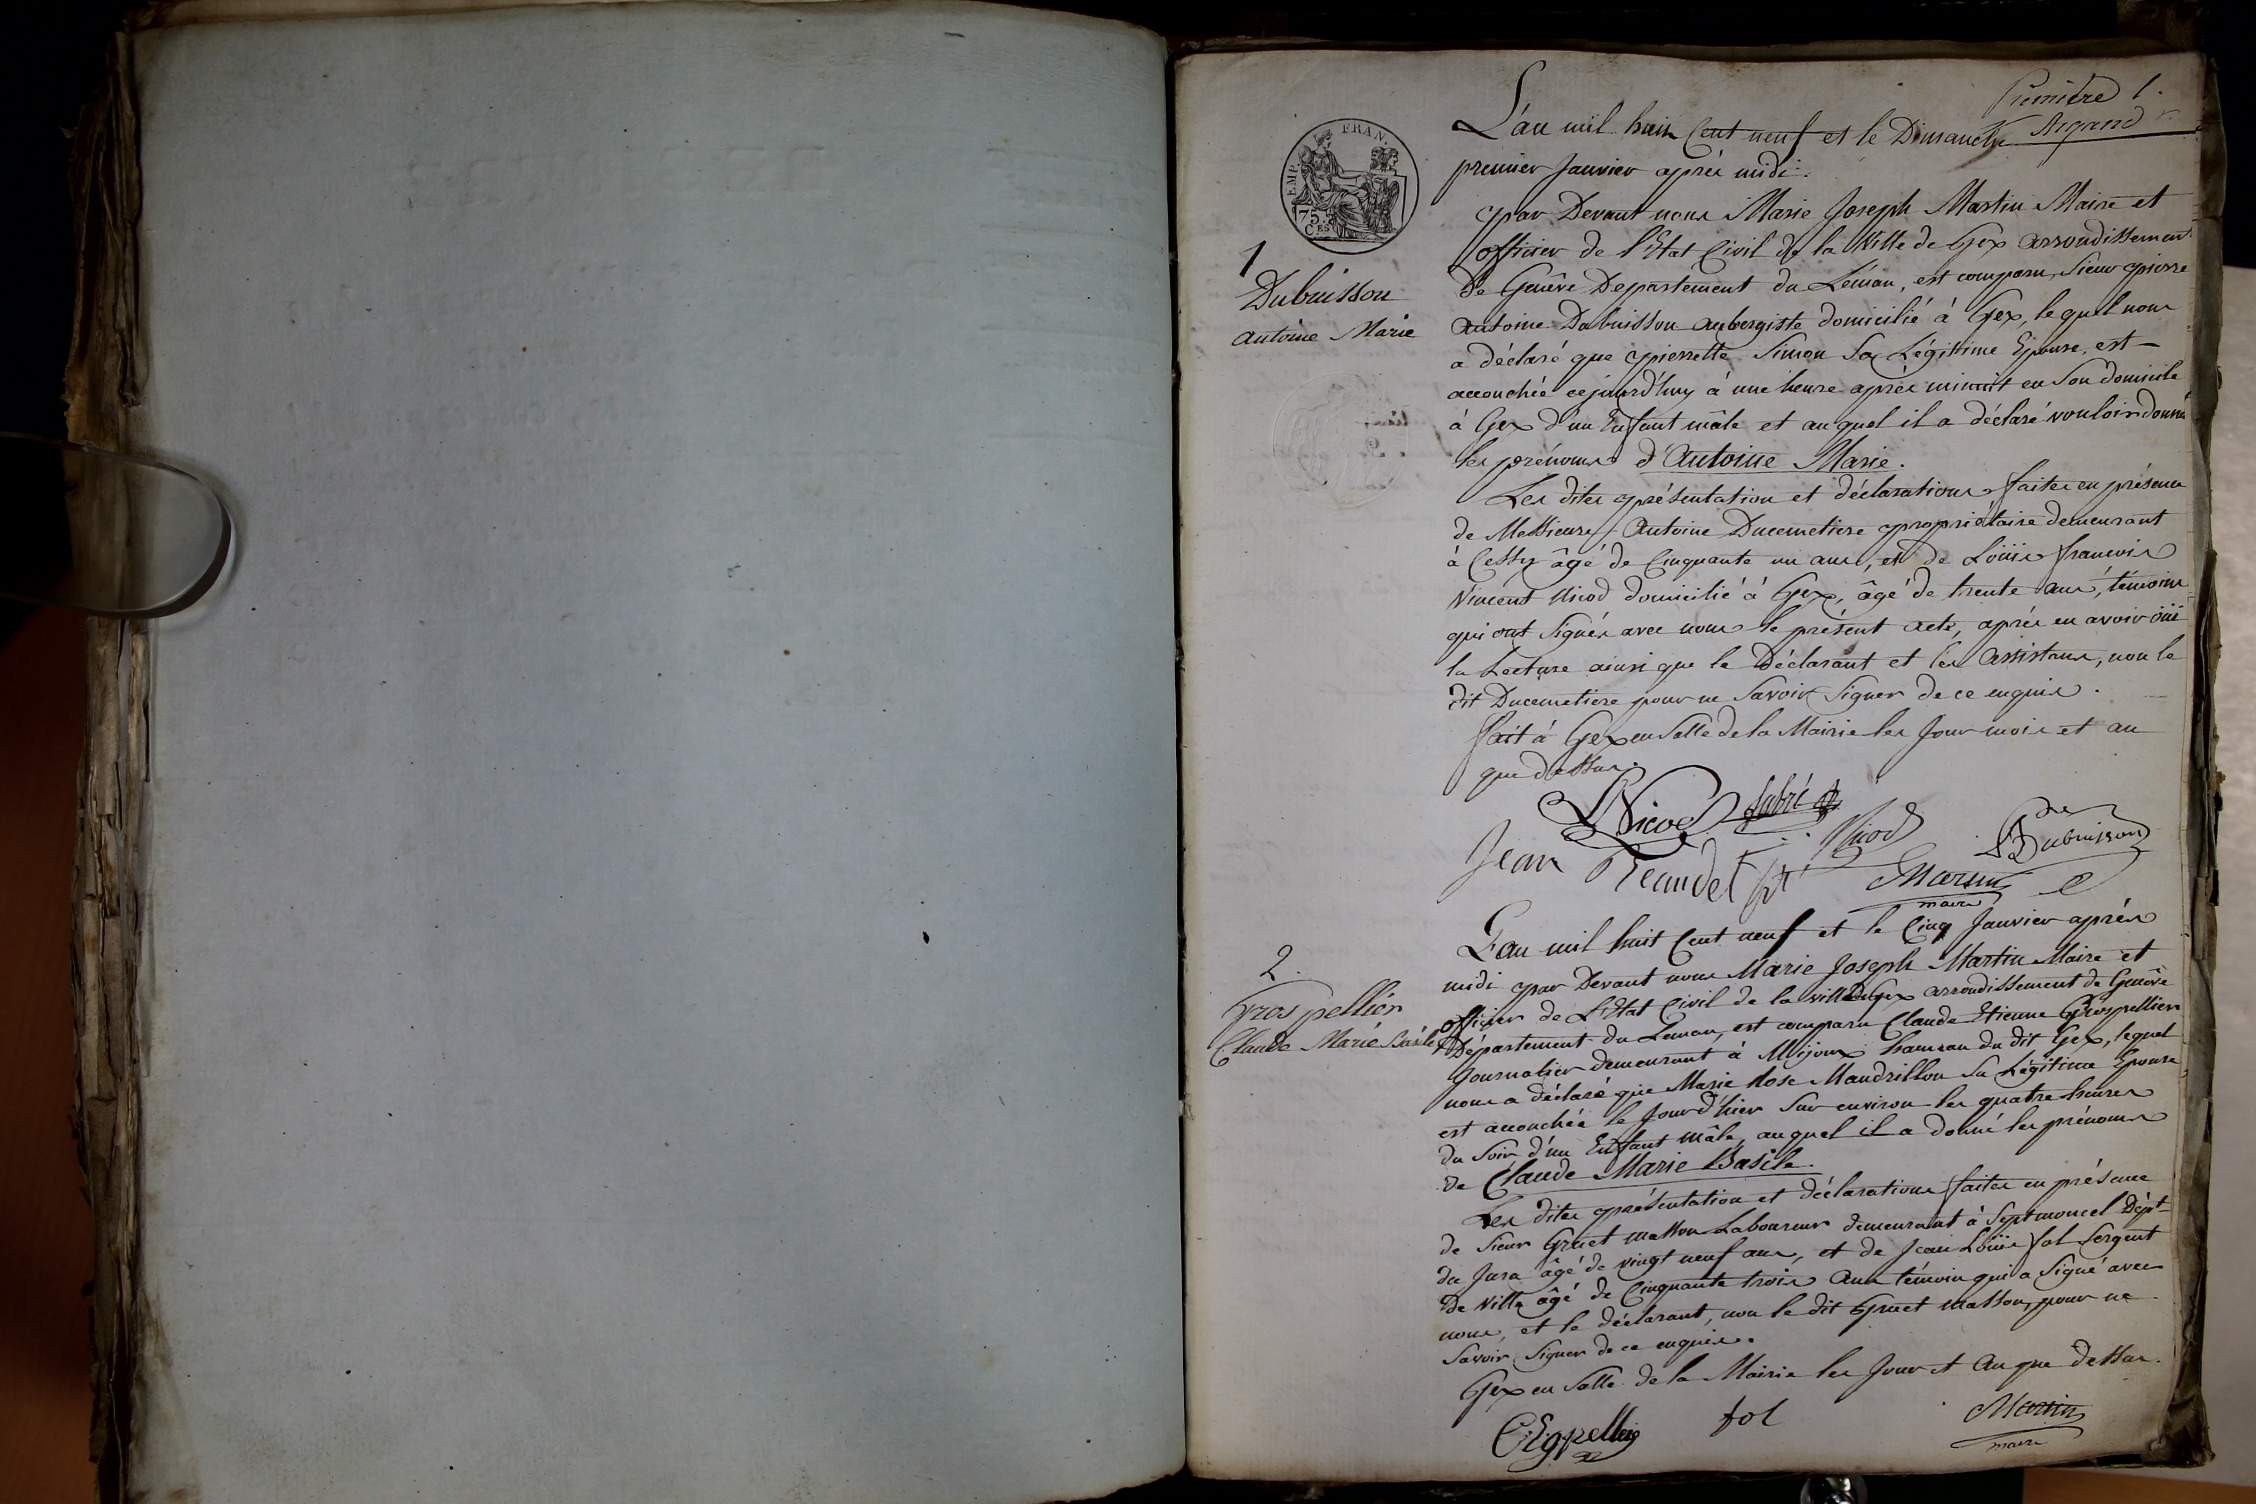 Première 1.
Argand
EMP. FRAN.
75
C.ES
L'an mil huit Cent neuf et le Dimanche
premier Janvier après midi.
1
Dubuisson
Antoine Marie
par Devant nous Marie Joseph Martin Maire et
officier de l'Etat Civil de la Ville de Gex arrondissement
de Genève Departement du Léman, est comparu, Sieur pierre
Antoine Dubuisson aubergiste domicilié à Gex, lequel nous
a déclaré que pierrette Simon Sa Légitime Epouse, est
accouchée cejourd'huy à une heure après minuit en Son domicile
à Gex d'un Enfant mâle et auquel il a déclaré vouloir donner
les prénoms d'Antoine Marie.
Les dites présentation et déclarations faites en présence
de Messieurs Antoine Ducemetiere propriétaire demeurant
à Cessy âgé de Cinquante un ans, et de Loüis françois
Vincent Nicod domicilié à Gex, âgé de trente ans, témoins
qui ont Signés avec nous le présent acte, après en avoir oüi
la Lecture ainsi que le Déclarant et les Assistans, non le
dit Ducemetiere pour ne Savoir Signer de ce enquis.
fait à Gex en Salle de la Mairie les Jour mois et an
que dessus.
LNicod fabré Nicod Dubuisson
Jean Martin
maire
2.
Grospellier
Claude Marie Basile
L'an mil huit Cent neuf et le Cinq Janvier après
midi par Devant nous Marie Joseph Martin Maire et
officier de L'Etat Civil de la ville de Gex arrondissement de Genève
Département du Leman, est comparu Claude Etienne Grospellier
Journalier demeurant à Mijoux hameau du dit Gex, lequel
nous a déclaré que Marie Rose Mandrillon Sa Légitime Epouse
est accouchée le Jour d'hier Sur environ les quatre heures
du Soir d'un Enfant mâle, auquel il a donné les prénoms
de Claude Marie Basile.
Les dites présentation et déclarations faites en présence
de Sieur Gruet Masson Laboureur demeurant à Septmoncel Dépt
du Jura âgé de vingt neuf ans, et de Jean Loüis fol Sergent
De Ville âgé de Cinquante trois Ans témoin qui a Signé avec
nous, et le déclarant, non le dit Gruet Masson, pour ne
Savoir Signer de ce enquis.
Gex en Salle de la Mairie les Jour et An que dessus.
fol Martin
maire